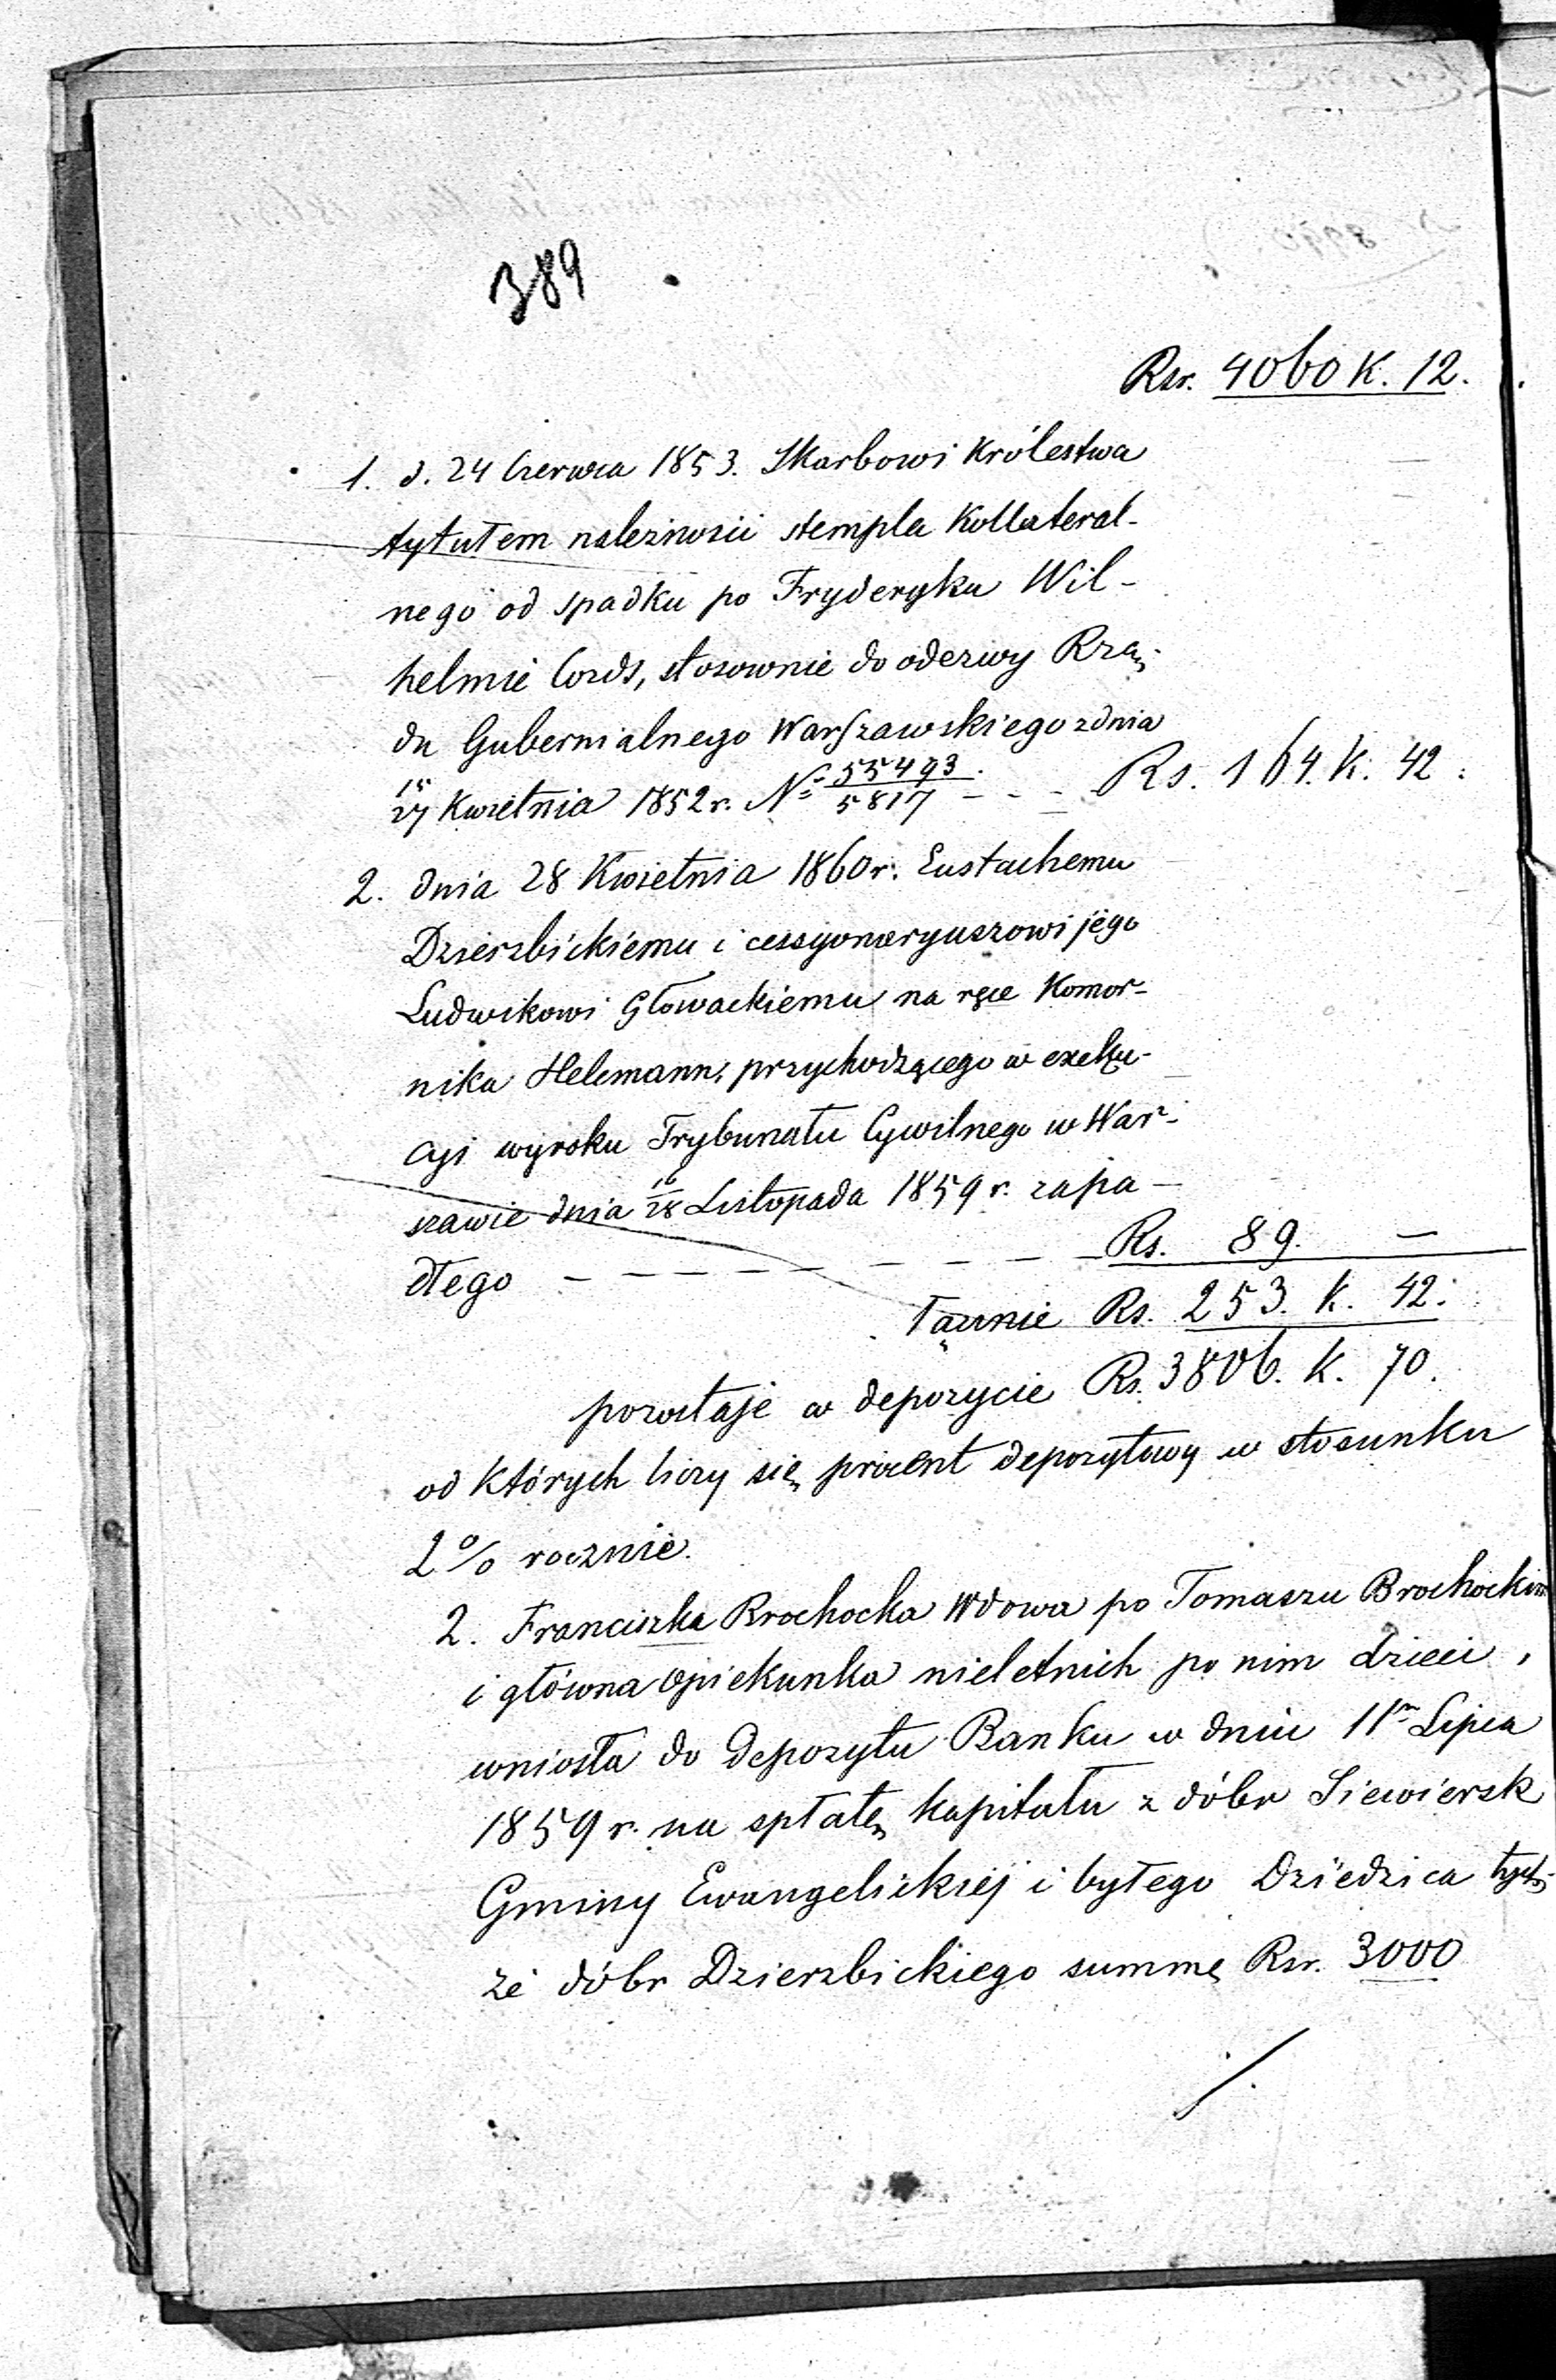 389
Rsr. 4060 K. 12.
1. d. 24 Czerwca 1853. Skarbowi Królestwa
tytułem należności stempla Kollateral-
nego od spadku po Fryderyku Wil-
helmie Cords, stosownie do odezwy Rzą-
du Gubernialnego Warszawskiego z dnia
15/27 Kwietnia 1852 r. № 55493/5817 - - - Rs. 164. k. 42.
2. dnia 28 Kwietnia 1860 r. Eustachemu
Dzierzbickiemu i cessyonaryuszowi jego
Ludwikowi Głowackiemu na ręce Komor-
nika Helemann, przychodzącego w exeku-
cyi wyroku Trybunału Cywilnego w War-
szawie dnia 16/28 Listopada 1859 r. zapa-
dłego - - - - - - - - - - Rs. 89. —
łącznie Rs. 253. k. 42.
pozostaje w depozycie Rs. 3806. k. 70.
od których liczy się procent depozytowy w stosunku
2% rocznie.
2. Franciszka Brochocka Wdowa po Tomaszu Brochockim
i główna opiekunka nieletnich po nim dzieci,
wniosła do Depozytu Banku w dniu 11m Lipca
1859 r. na spłatę kapitału z dóbr Siewiersk
Gminy Ewangelickiej i byłego Dziedzica tych-
że dóbr Dzierzbickiego summę Rsr. 3000
./.